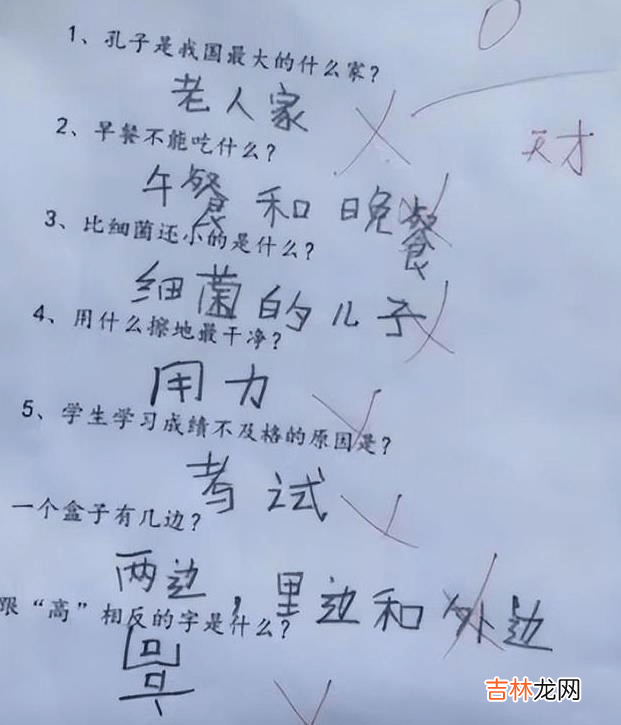 1、孔子是我国最大的什么家?
老人家
天才
2、早餐不能吃什么?
午餐和晚餐
3、比细菌还小的是什么?
细菌的儿子
4、用什么擦地最干净?
用力
5、学生学习成绩不及格的原因是?
考试
一个盒子有几边?
两边,里边和外边
跟“高”相反的字是什么?
吉林龙网